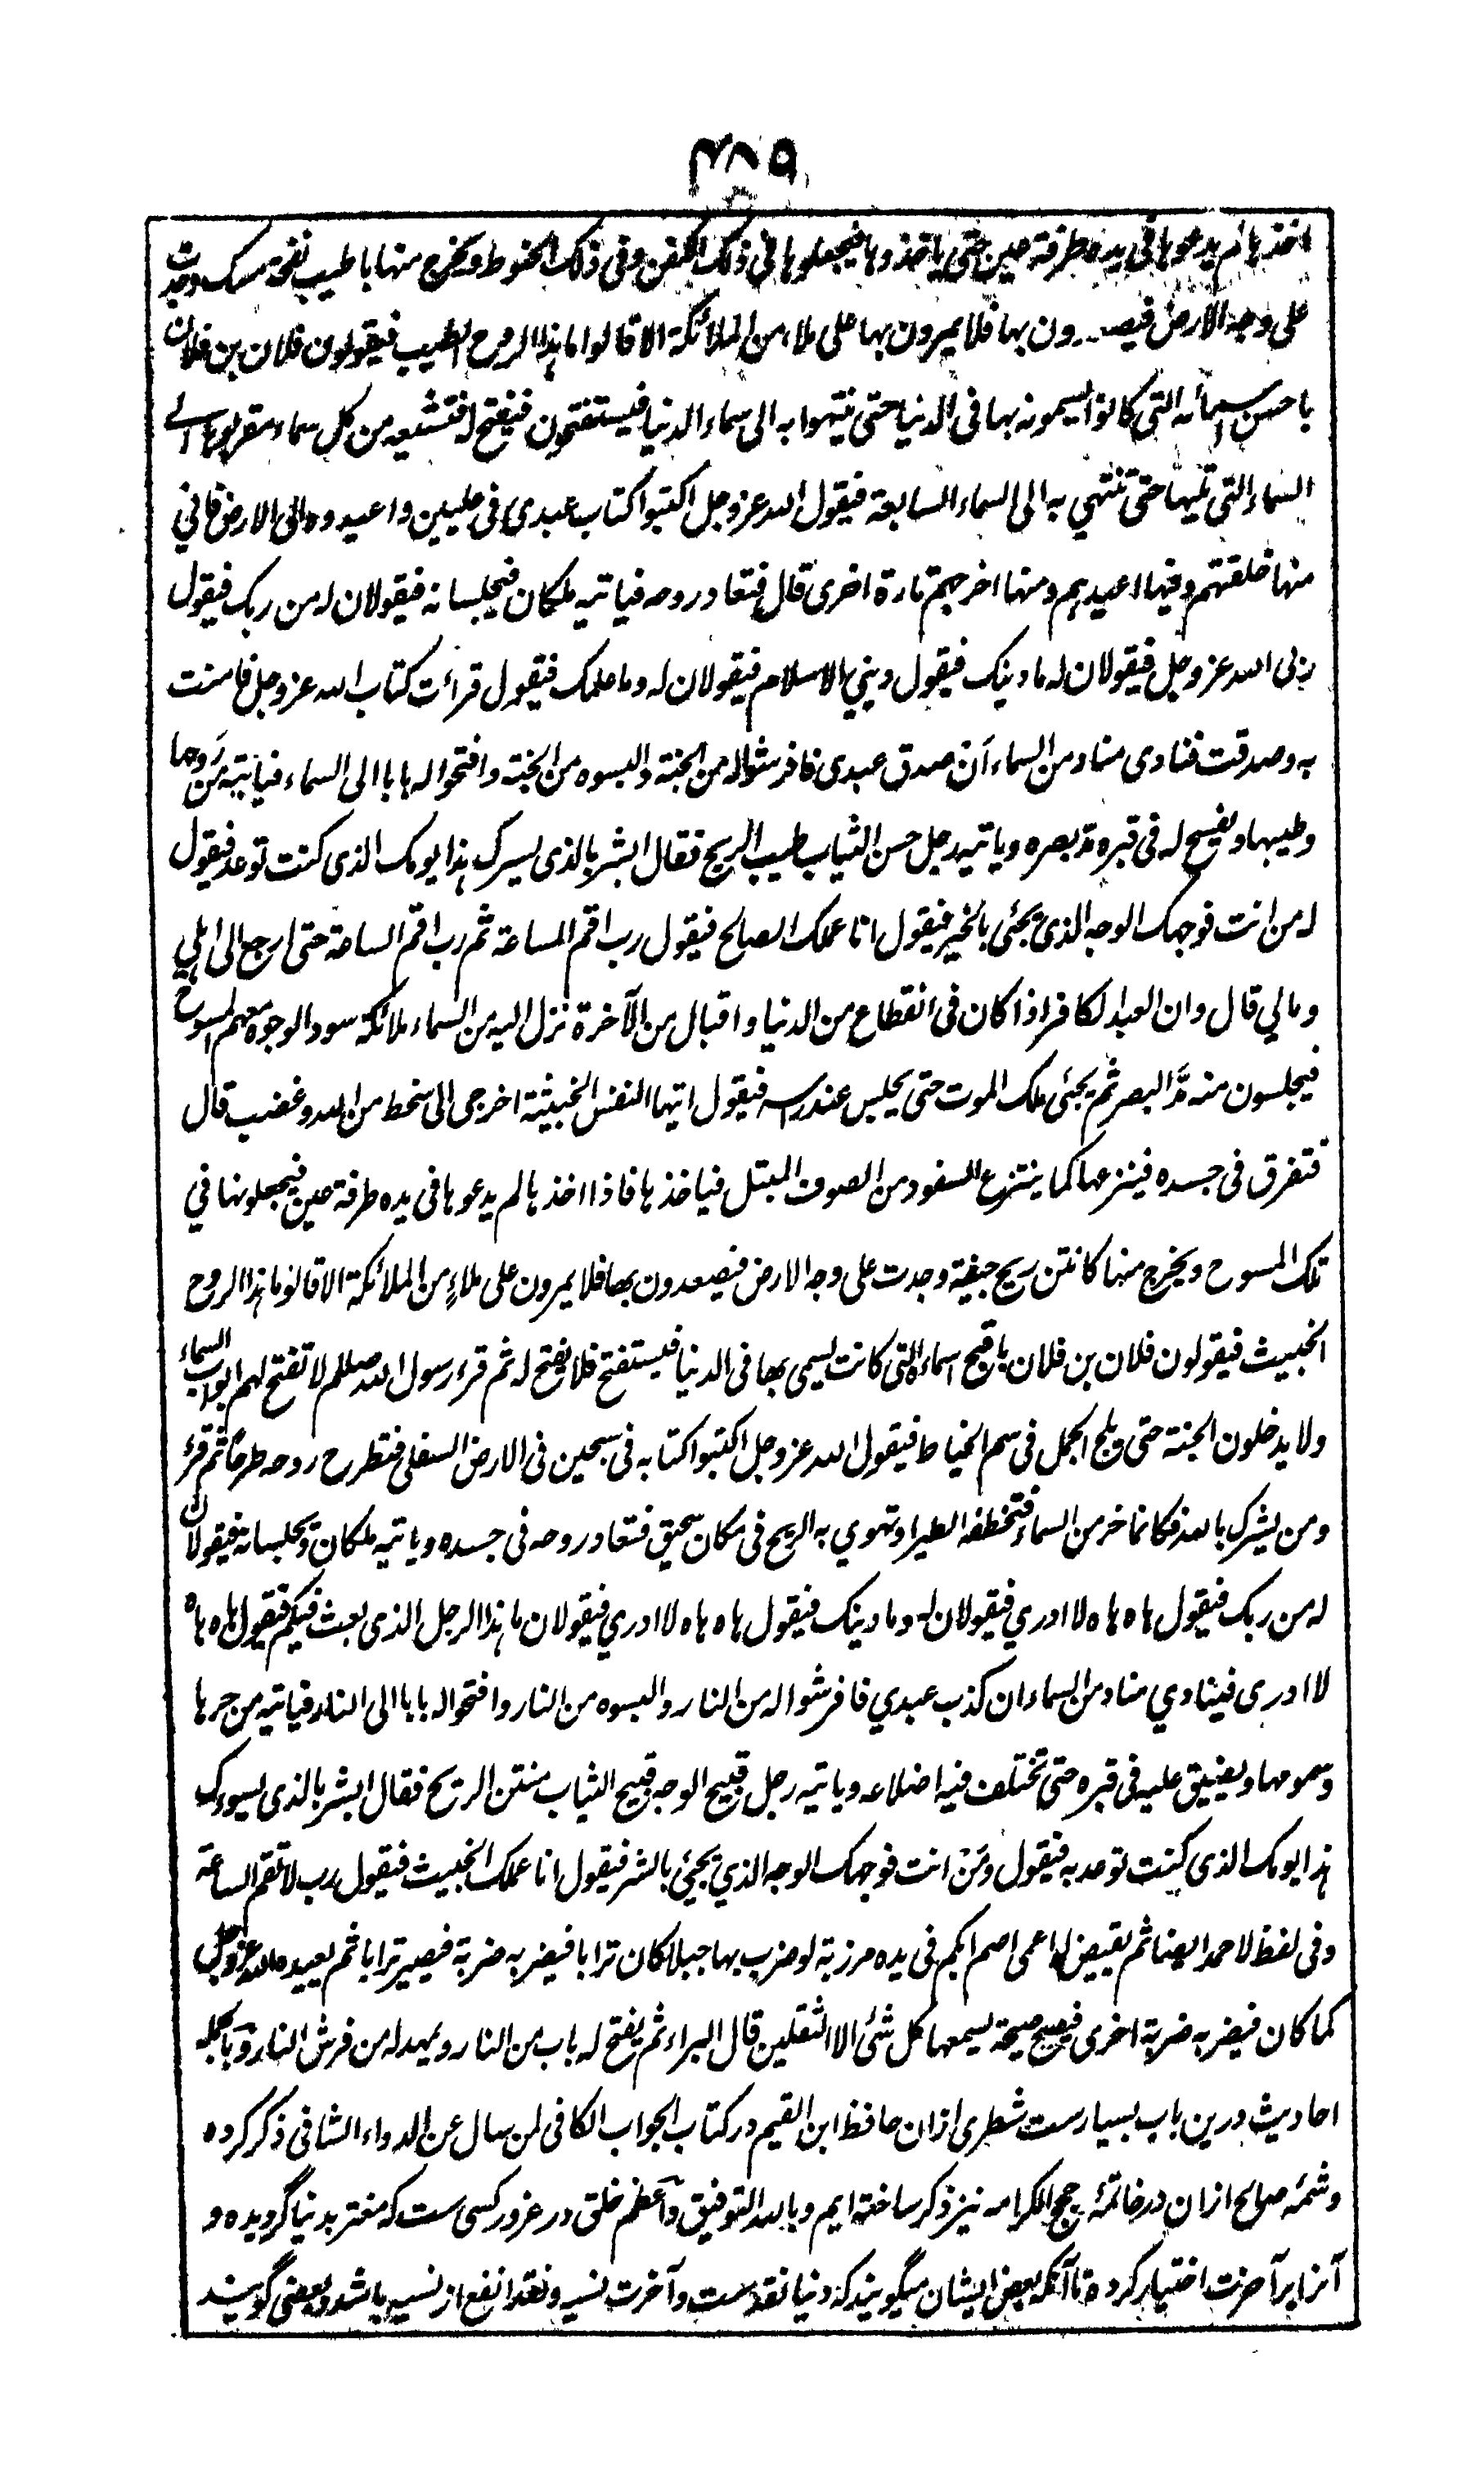 ٣٨٩
اخذها لم يدعوها فى يده طرفة عين حتى ياخذوها فيجعلوها فى ذلك الكفن وفى ذلك الحنوط ويخرج منها باطيب نفحة مسك وجدت
على وجه الارض فيصعدون بها فلا يمرون بها على ملاء من الملائكة الا قالوا ما هذا الروح الطيب فيقولون فلان بن فلان
باحسن اسمائه التى كانوا يسمونه بها فى الدنيا حتى ينتهوا به الى سماء الدنيا فيستفتحون فيفتح له فتشيعه من كل سماء مقربوها الى
السماء التى تليها حتى تنتهي به الى السماء السابعة فيقول الله عز وجل اكتبوا كتاب عبدى فى عليين واعيدوه الى الارض فاني
منها خلقتهم وفيها اعيدهم ومنها اخرجهم تارة اخرى قال فتعاد روحه فياتيه ملكان فيجلسانه فيقولان له من ربك فيقول
ربى الله عز وجل فيقولان له ما دينك فيقول ديني الاسلام فيقولان له وما علمك فيقول قرات كتاب الله عز وجل فامنت
به وصدقت فنادى مناد من السماء ان صدق عبدى فافرشوا له من الجنة والبسوه من الجنة وافتحوا له بابا الى السماء فياتيه من روحها
وطيبها ويفسح له فى قبره مد بصره وياتيه رجل حسن الثياب طيب الريح فقال ابشر بالذى يسرك هذا يومك الذى كنت توعد فيقول
له من انت فوجهك الوجه الذى يجئى بالخير فيقول انا عملك الصالح فيقول رب اقم الساعة ثم رب اقم الساعة حتى ارجع الى اهلي
ومالي قال وان العبد الكافر اذا كان فى انقطاع من الدنيا واقبال من الآخرة نزل اليه من السماء ملائكة سود الوجوه معهم المسوح
فيجلسون منه مد البصر ثم يجئى ملك الموت حتى يجلس عند راسه فيقول ايتها النفس الخبيثة اخرجى الى سخط من الله وغضب قال
فتفرق فى جسده فينزعها كما ينتزع السفود من الصوف المبتل فياخذها فاذا اخذها لم يدعوها فى يده طرفة عين فيجعلونها في
تلك المسوح ويخرج منها كانتن ريح جيفة وجدت على وجه الارض فيصعدون بها فلا يمرون على ملاءٍ من الملائكة الا قالوا ما هذا الروح
الخبيث فيقولون فلان بن فلان باقبح اسماءه التى كانت يسمى بها فى الدنيا فيستفتح فلا يفتح له ثم قرء رسول الله صللم لا تفتح لهم ابواب السماء
ولا يدخلون الجنة حتى يلج الجمل فى سم الخياط فيقول الله عز وجل اكتبوا كتابه فى سجين فى الارض السفلى فتطرح روحه طرحا ثم قرء
ومن يشرك بالله فكانما خر من السماء فتخطفه الطير او تهوي به الريح فى مكان سحيق فتعاد روحه فى جسده وياتيه ملكان ويجلسانه فيقولان
له من ربك فيقول هاه هاه لا ادري فيقولان له وما دينك فيقول هاه هاه لا ادري فيقولان ما هذا الرجل الذى بعث فيكم فيقول هاه هاه
لا ادرى فينادي مناد من السماء ان كذب عبدي فافرشوا له من النار والبسوه من النار وافتحوا له بابا الى النار فياتيه من حرها
وسمومها ويضيق عليه فى قبره حتى تختلف فيه اضلاعه وياتيه رجل قبيح الوجه قبيح الثياب منتن الريح فقال ابشر بالذى يسوءك
هذا يومك الذى كنت توعد به فيقول ومن انت فوجهك الوجه الذي يجيئ بالشر فيقول انا عملك الخبيث فيقول رب لا تقم الساعة
وفى لفظ لاحمد ايضا ثم يقيض له اعمى اصم ابكم فى يده مرزبة لو ضرب بها جبلا كان ترابا فيضربه ضربة فيصير ترابا ثم يعيده الله عز وجل
كما كان فيضربه ضربة اخرى فيصيح صيحة يسمعها كل شئ الا الثقلين قال البراء ثم يفتح له باب من النار ويمهد له من فرش النار وبالجمله
احاديث درين باب بسيارست شطرى ازان حافظ ابن القيم در كتاب الجواب الكافى لمن سال عن الدواء الشافى ذكر كرده
وشمهٔ صالح ازان در خاتمهٔ حجج الكرامه نيز ذكر ساخته ايم وبالله التوفيق واعظم خلق در غرور كسى ست كه مغتر بدنيا گرديده و
آنرا بر آخرت اختيار كرده تا آنكه بعض ايشان ميگويند كه دنيا نقدست وآخرت نسيه ونقد انفع از نسيه باشد وبعضى گويند